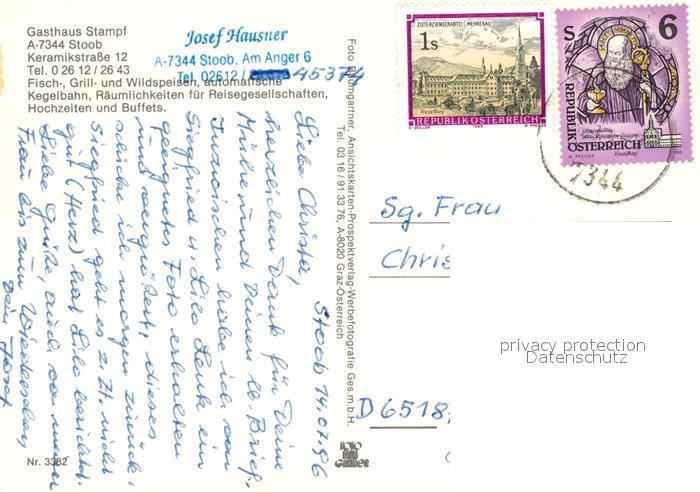 Gasthaus Stampf
A-7344 Stoob
Keramikstraße 12
Tel. 0 26 12 / 26 43
Fisch-, Grill- und Wildspeisen, automatische
Kegelbahn, Räumlichkeiten für Reisegesellschaften,
Hochzeiten und Buffets.
Josef Hausner
A-7344 Stoob, Am Anger 6
Tel. 02612/ 45374
Stoob 14.07.96
Liebe Christa,
herzlichen Dank für Deine
Mühe und Deinen lb. Brief.
Inzwischen habe ich von
Siegfried u. Lilo Lenk ein
Foto erhalten
vergrößert, dieses
schicke ich morgen zurück.
Siegfried geht es z. Zt. nicht
gut (Herz) hat Lilo berichtet.
Liebe Grüße, auch von meiner
Frau bis zum Wiedersehen
Dein Josef
Nr. 3382
Foto Baumgartner, Ansichtskarten-Prospektverlag-Werbefotografie Ges.m.b.H.
Tel. 03 16 / 91 33 76, A-8020 Graz-Österreich
FOTO
BAUM
GARTNER
ZISTERZIENSERABTEI MEHRERAU
1s
REPUBLIK ÖSTERREICH
S 6
REPUBLIK
ÖSTERREICH
7344
Sg. Frau
Chris
D 6518
privacy protection
Datenschutz